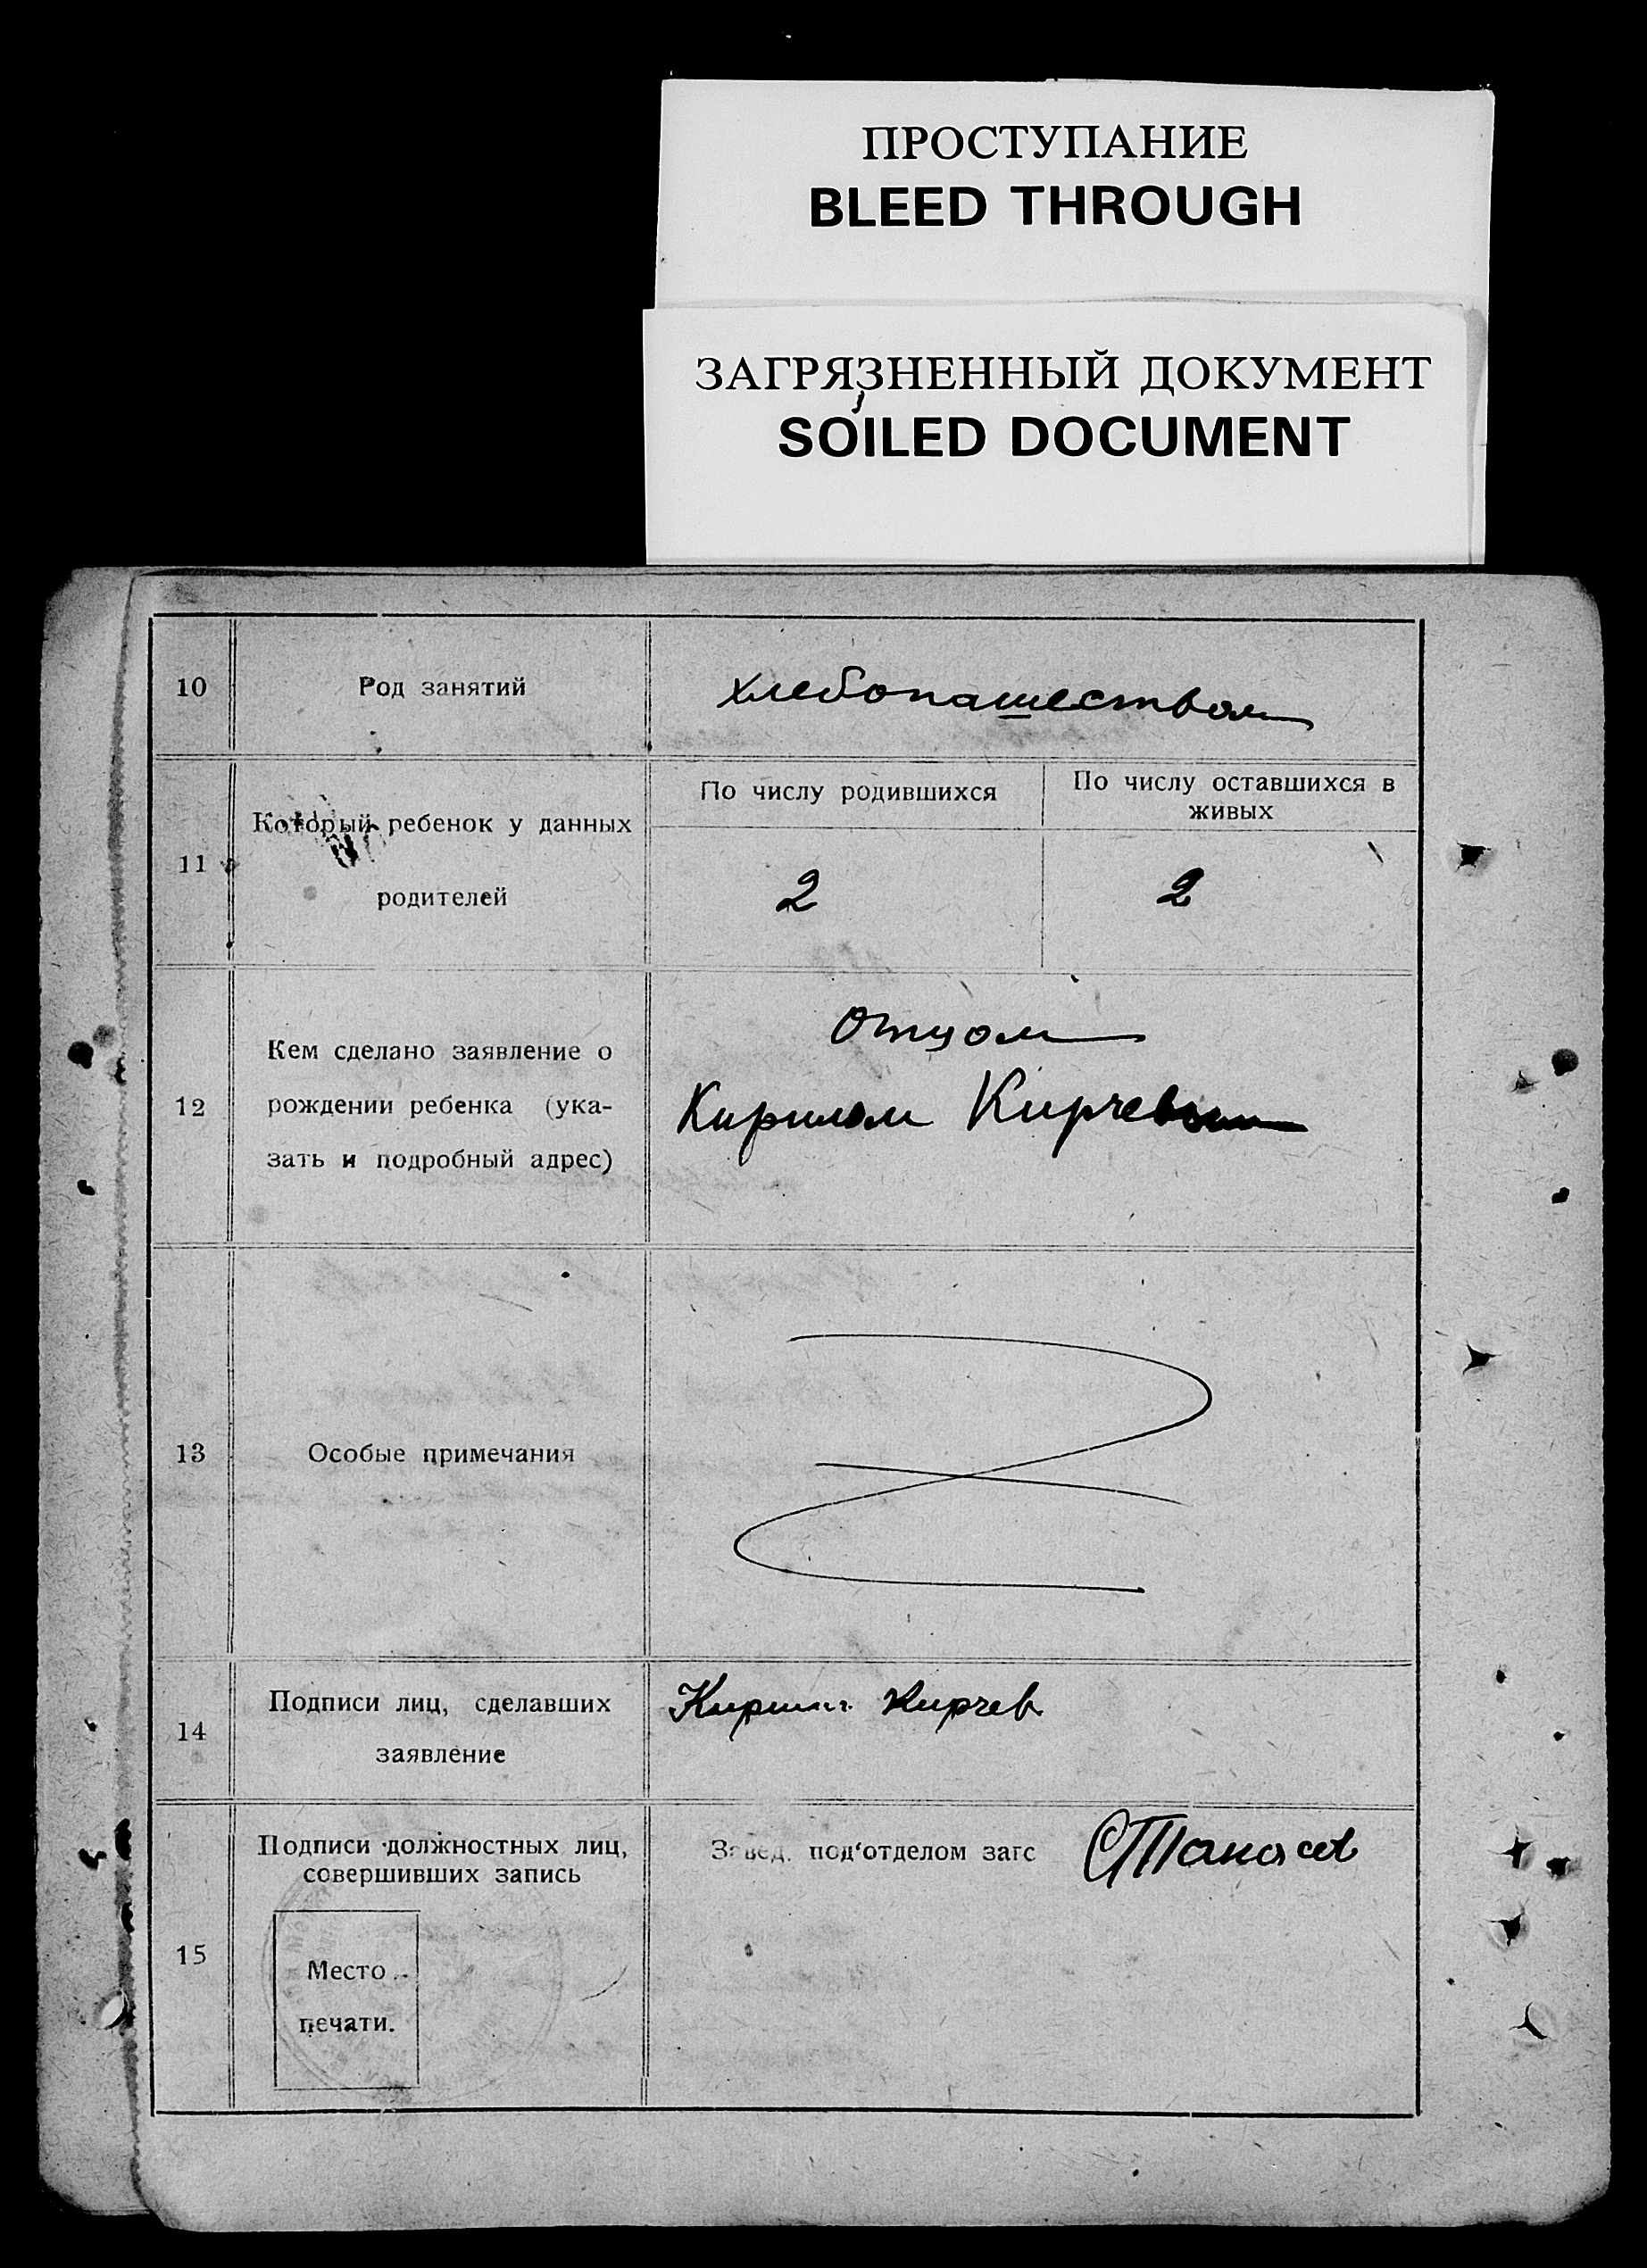 ПРОСТУПАНИЕ
BLEED THROUGH
ЗАГРЯЗНЕННЫЙ ДОКУМЕНТ
SOILED DOCUMENT
10
Род занятий
хлебопашеством
11
Который ребенок у данных
родителей
По числу родившихся
По числу оставшихся в
живых
2
2
12
Кем сделано заявление о
рождении ребенка (ука-
зать и подробный адрес)
Отцом
Кирилом Кирчевым
13
Особые примечания
14
Подписи лиц, сделавших
заявление
Кирилл Кирчев
15
Подписи должностных лиц,
совершивших запись
Место
печати.
Завед. под'отделом загс
СТанасов